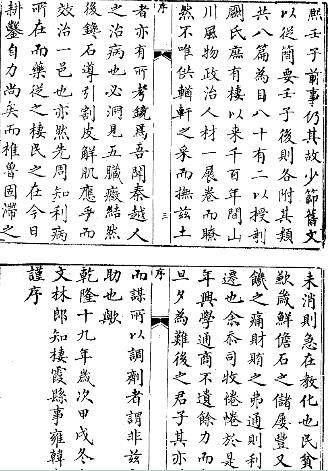 熙壬子前事仍其故少節舊文
以從簡要壬子後則各附其類
共八篇為目八十有二以授剞
劂氏庶有棲以來千百年間山
川風物政治人材展卷而瞭
然不唯供輶軒之采而撫茲土
序
三
者亦有所考鏡焉吾聞秦越人
之治病也必洞見五臟癥結然
後鑱石導引割皮解肌應手而
效治一邑也亦然先周知利病
所在而藥從之棲民之在今日
耕鑿自力尚矣而椎魯固滯之
未消則急在教化也民貧
歉歲鮮儋石之儲屢豐又
饑之痛財賄之弗通則利
遷也余忝司牧惓惓於是
年興學通商不遺餘力而
旦夕為難後之君子其亦
序
而謀所以調劑者謂非茲
助也歟
乾隆十九年歲次甲戌冬
文林郎知棲霞縣事雍韓
謹序